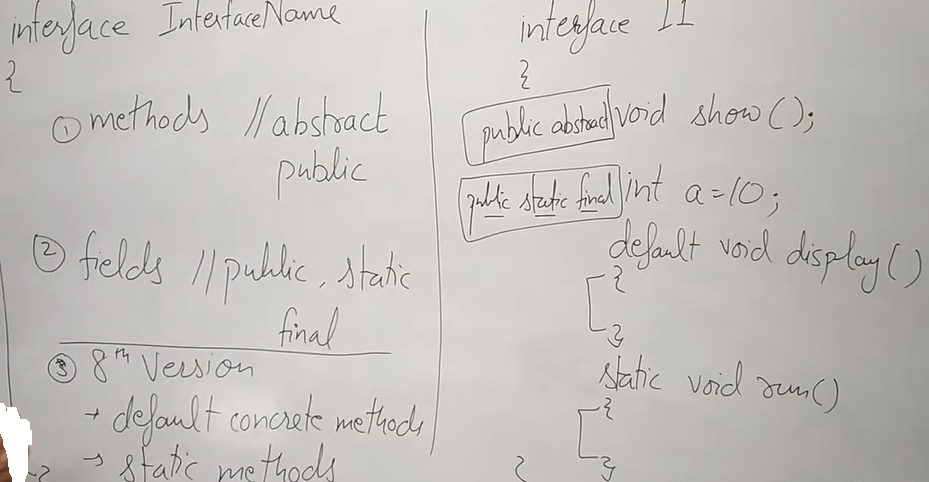 interface InterfaceName
{
① methods //abstract
public
② fields //public, static
final
③ 8th Version
→ default concrete methods
→ static methods
interface I1
{
public abstract void show();
public static final int a=10;
default void display()
{
}
static void run()
{
}
}